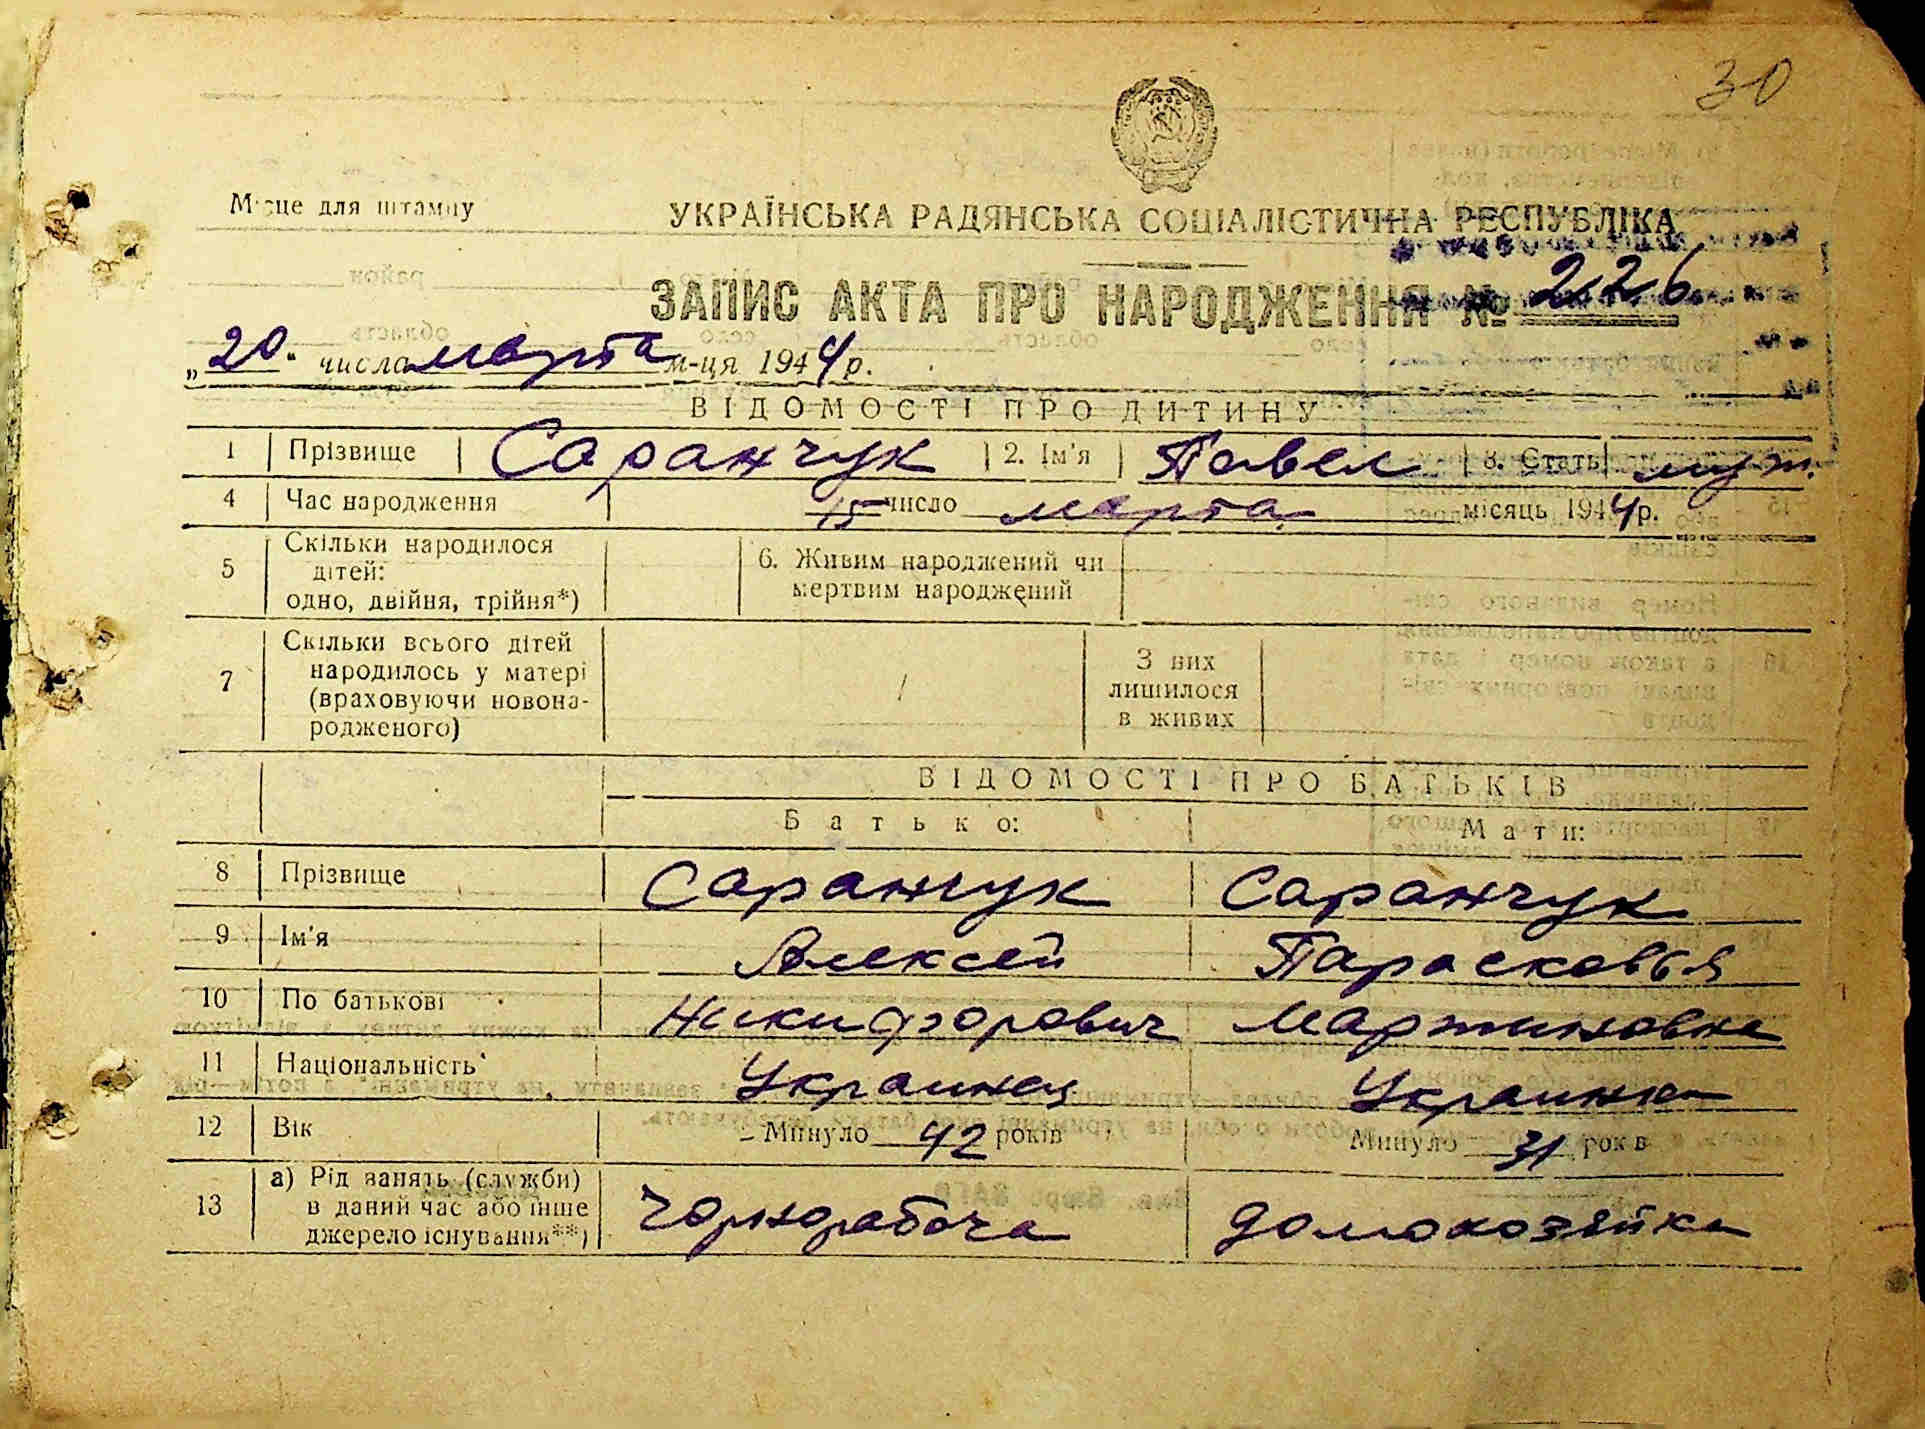 30
Місце для штампу
УКРАЇНСЬКА РАДЯНСЬКА СОЦІАЛІСТИЧНА РЕСПУБЛІКА
ЗАПИС АКТА ПРО НАРОДЖЕННЯ № 226
„20" числа марта м-ця 1944 р.
ВІДОМОСТІ ПРО ДИТИНУ
1 Прізвище Саранчук 2. Ім'я Павел 3. Стать муж.
4 Час народження 15 число марта місяць 1944 р.
5 Скільки народилося дітей: одно, двійня, трійня*) 6. Живим народжений чи мертвим народжений
7 Скільки всього дітей народилось у матері (враховуючи новонародженого) З них лишилося в живих
ВІДОМОСТІ ПРО БАТЬКІВ
Батько: Мати:
8 Прізвище Саранчук Саранчук
9 Ім'я Алексей Парасковья
10 По батькові Никифорович Мартиновна
11 Національність Украинец Украинка
12 Вік Минуло 42 років Минуло 31 років
13 а) Рід занять (служби) в даний час або інше джерело існування**) Чорнорабоча домохозяйка